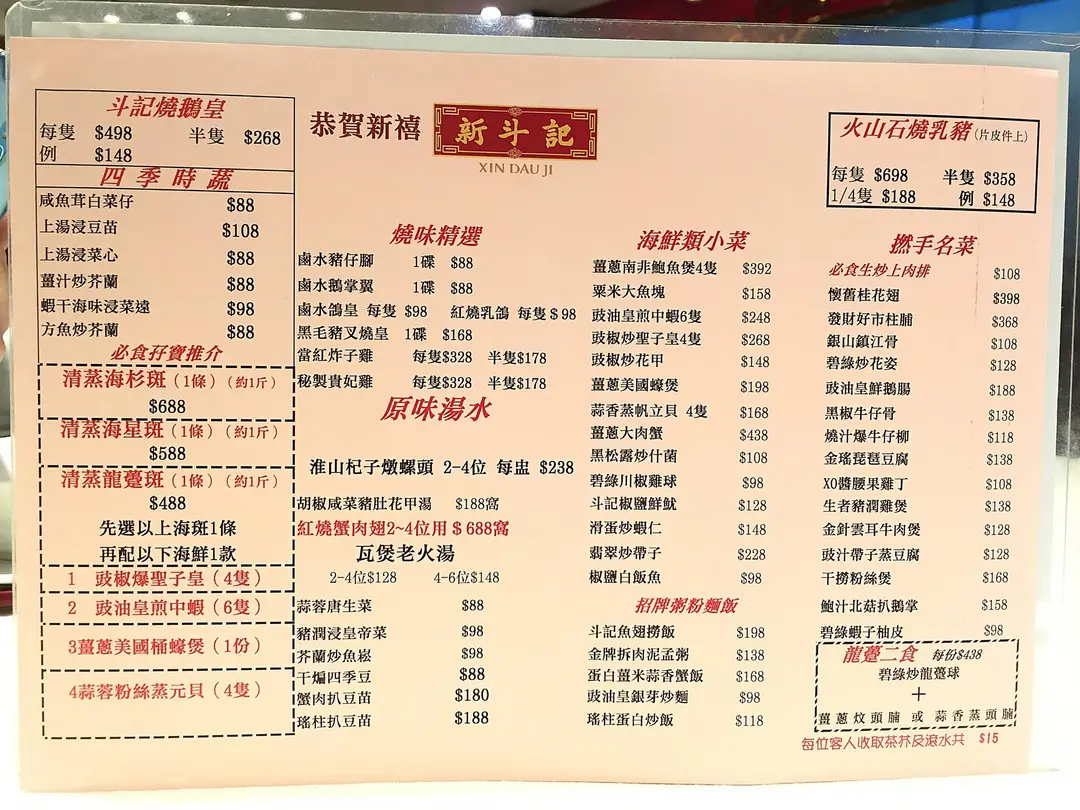 恭賀新禧
新斗記
XIN DAU JI
斗記燒鵝皇
每隻 $498 半隻 $268
例 $148
四季時蔬
咸魚茸白菜仔 $88
上湯浸豆苗 $108
上湯浸菜心 $88
薑汁炒芥蘭 $88
蝦干海味浸菜遠 $98
方魚炒芥蘭 $88
必食孖寶推介
清蒸海杉斑(1條)(約1斤)
$688
清蒸海星斑(1條)(約1斤)
$588
清蒸龍躉斑(1條)(約1斤)
$488
先選以上海斑1條
再配以下海鮮1款
1 豉椒爆聖子皇(4隻)
2 豉油皇煎中蝦(6隻)
3薑蔥美國桶蠔煲(1份)
4蒜蓉粉絲蒸元貝(4隻)
燒味精選
鹵水豬仔腳 1碟 $88
鹵水鵝掌翼 1碟 $88
鹵水鴿皇 每隻 $98 紅燒乳鴿 每隻$98
黑毛豬叉燒皇 1碟 $168
當紅炸子雞 每隻$328 半隻$178
秘製貴妃雞 每隻$328 半隻$178
原味湯水
淮山杞子燉螺頭 2-4位 每盅 $238
胡椒咸菜豬肚花甲湯 $188窩
紅燒蟹肉翅2~4位用$688窩
瓦煲老火湯
2-4位$128 4-6位$148
蒜蓉唐生菜 $88
豬潤浸皇帝菜 $98
芥蘭炒魚崧 $98
干煸四季豆 $88
蟹肉扒豆苗 $180
瑤柱扒豆苗 $188
海鮮類小菜
薑蔥南非鮑魚煲4隻 $392
粟米大魚塊 $158
豉油皇煎中蝦6隻 $248
豉椒炒聖子皇4隻 $268
豉椒炒花甲 $148
薑蔥美國蠔煲 $198
蒜香蒸帆立貝 4隻 $168
薑蔥大肉蟹 $438
黑松露炒什菌 $108
碧綠川椒雞球 $98
斗記椒鹽鮮魷 $128
滑蛋炒蝦仁 $148
翡翠炒帶子 $228
椒鹽白飯魚 $98
招牌粥粉麵飯
斗記魚翅撈飯 $198
金牌拆肉泥孟粥 $138
蛋白薑米蒜香蟹飯 $168
豉油皇銀芽炒麵 $98
瑤柱蛋白炒飯 $118
火山石燒乳豬(片皮件上)
每隻 $698 半隻 $358
1/4隻 $188 例 $148
撚手名菜
必食生炒上肉排 $108
懷舊桂花翅 $398
發財好市柱脯 $368
銀山鎮江骨 $108
碧綠炒花姿 $128
豉油皇鮮鵝腸 $188
黑椒牛仔骨 $138
燒汁爆牛仔柳 $118
金瑤琵琶豆腐 $138
XO醬腰果雞丁 $108
生者豬潤雞煲 $138
金針雲耳牛肉煲 $128
豉汁帶子蒸豆腐 $128
干撈粉絲煲 $168
鮑汁北菇扒鵝掌 $158
碧綠蝦子柚皮 $98
龍躉二食 每份$438
碧綠炒龍躉球
+
薑蔥炆頭腩 或 蒜香蒸頭腩
每位客人收取茶芥及滾水共 $15